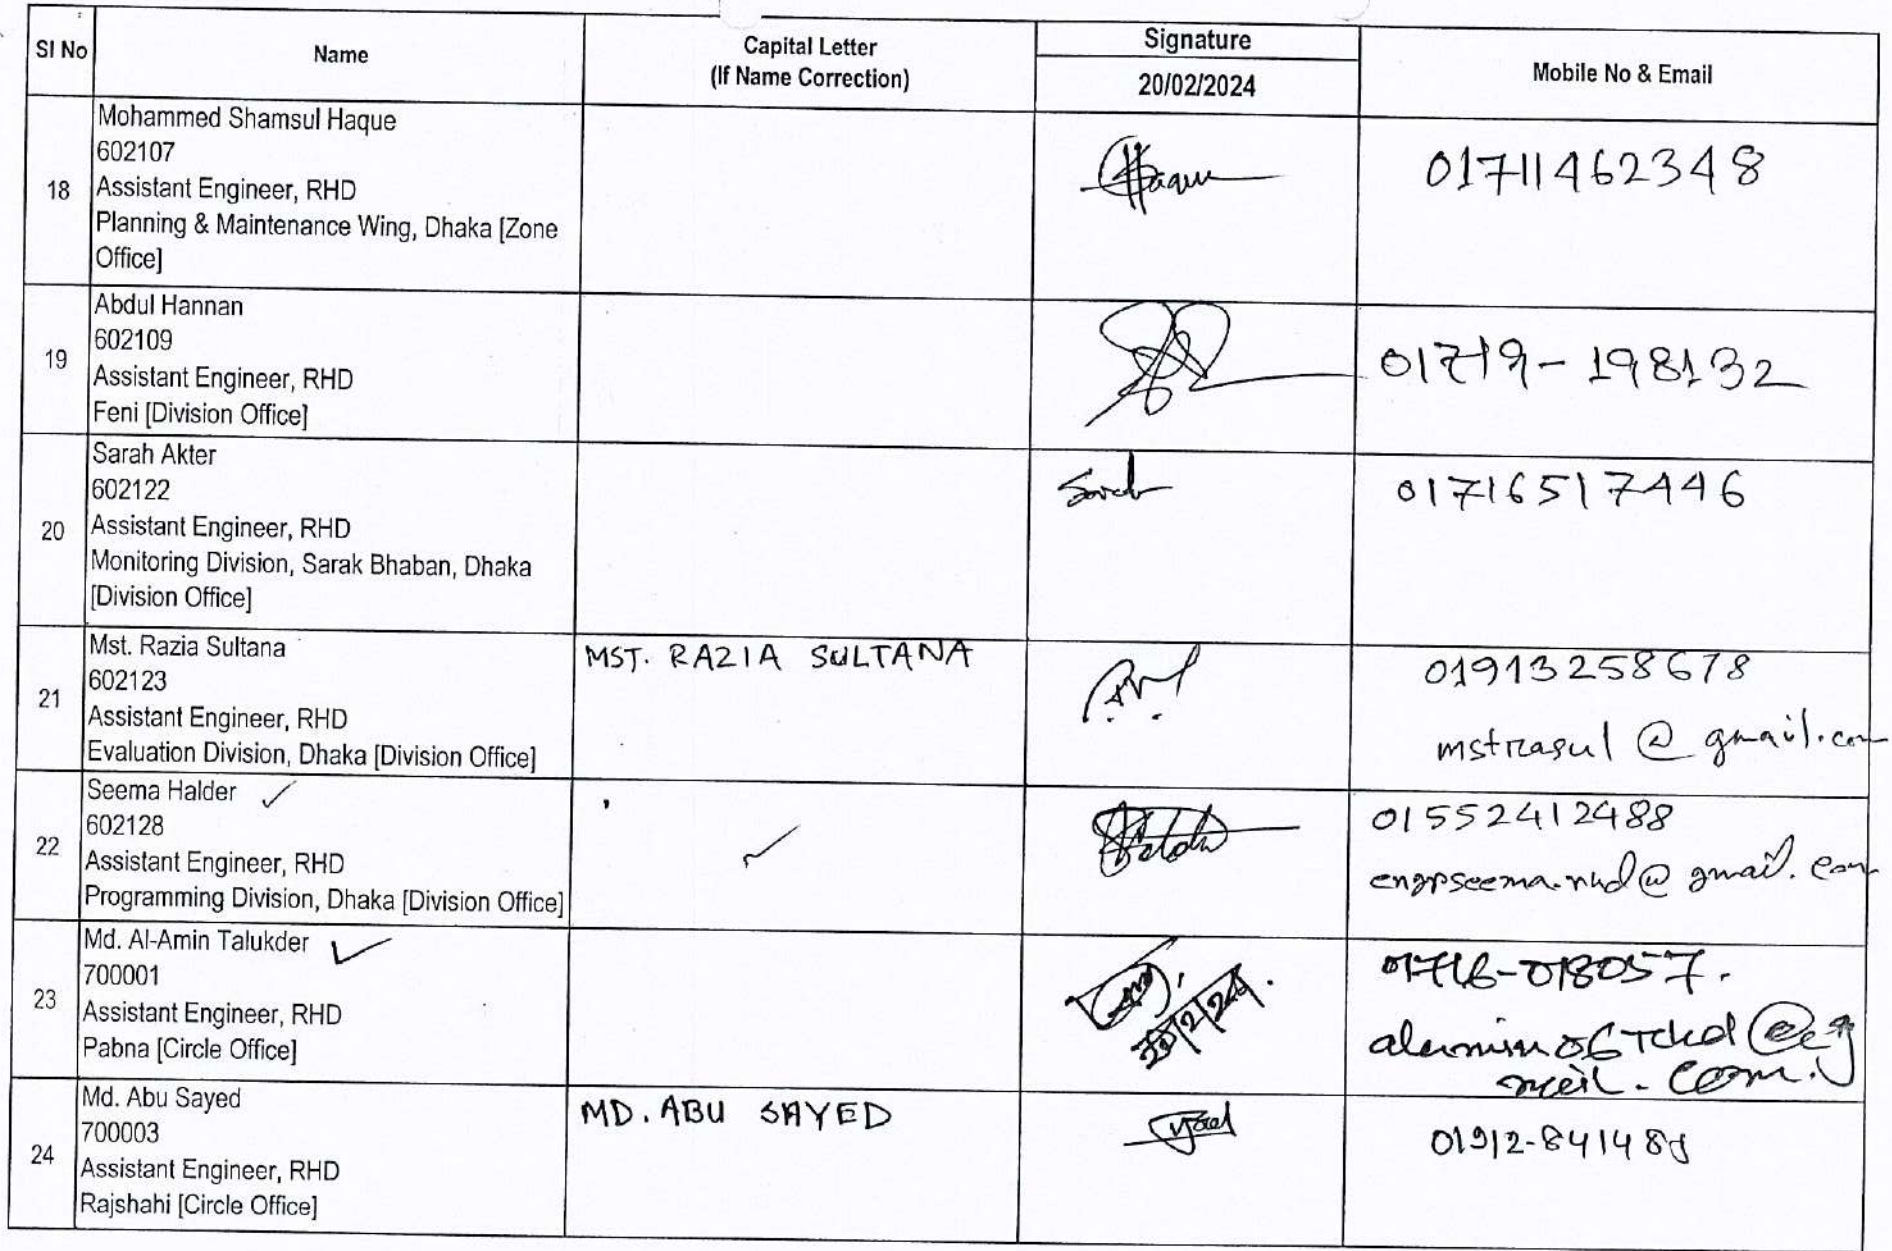 Sl No
Name
Capital Letter
(If Name Correction)
Signature
20/02/2024
Mobile No & Email
18
Mohammed Shamsul Haque
602107
Assistant Engineer, RHD
Planning & Maintenance Wing, Dhaka [Zone
Office]
01711462348
19
Abdul Hannan
602109
Assistant Engineer, RHD
Feni [Division Office]
01719-198132
20
Sarah Akter
602122
Assistant Engineer, RHD
Monitoring Division, Sarak Bhaban, Dhaka
[Division Office]
Sarah
01716517446
21
Mst. Razia Sultana
602123
Assistant Engineer, RHD
Evaluation Division, Dhaka [Division Office]
MST. RAZIA SULTANA
01913258678
mstrasul@gmail.com
22
Seema Halder
602128
Assistant Engineer, RHD
Programming Division, Dhaka [Division Office]
01552412488
23
Md. Al-Amin Talukder
700001
Assistant Engineer, RHD
Pabna [Circle Office]
20/2/24
01716-018057.
24
Md. Abu Sayed
700003
Assistant Engineer, RHD
Rajshahi [Circle Office]
MD. ABU SAYED